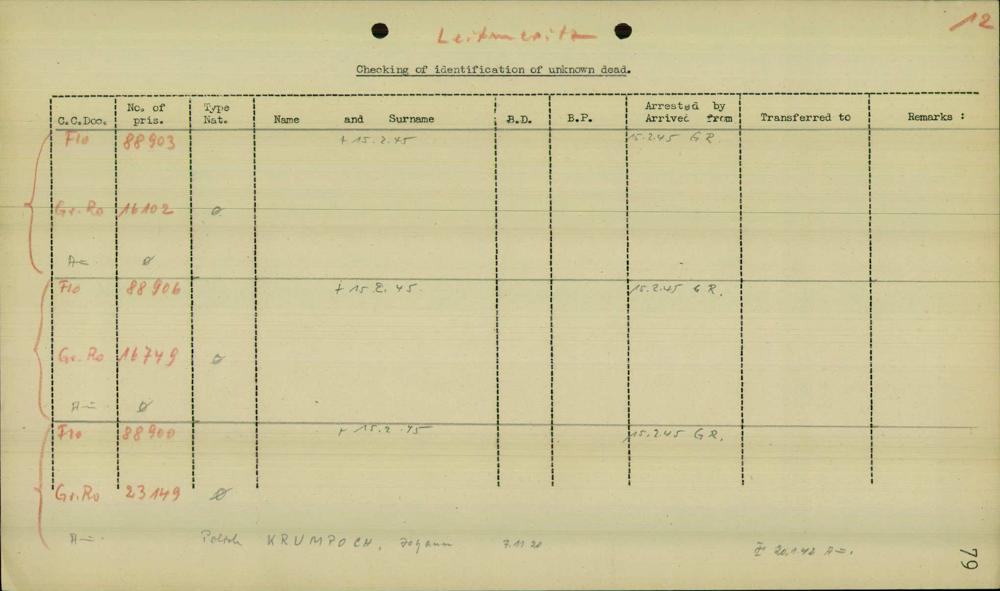 12
Leitmeritz
Checking of identification of unknown dead.
C.C.Doc. No. of pris. Type Nat. Name and Surname B.D. B.P. Arrested by Arrived from Transferred to Remarks :
Flo 88903 + 15.2.45 15.2.45 G R.
Gr. Ro 16102 ø
A= ø
Flo 88906 + 15.2.45. 15.2.45 G R.
Gr. Ro 16749 ø
A= ø
Flo 88900 + 15.2.45 15.2.45 G R.
Gr. Ro 23149 ø
A=. Polish KRUMPOCH, Johann 7.11.20 20.1.42 A=.
79